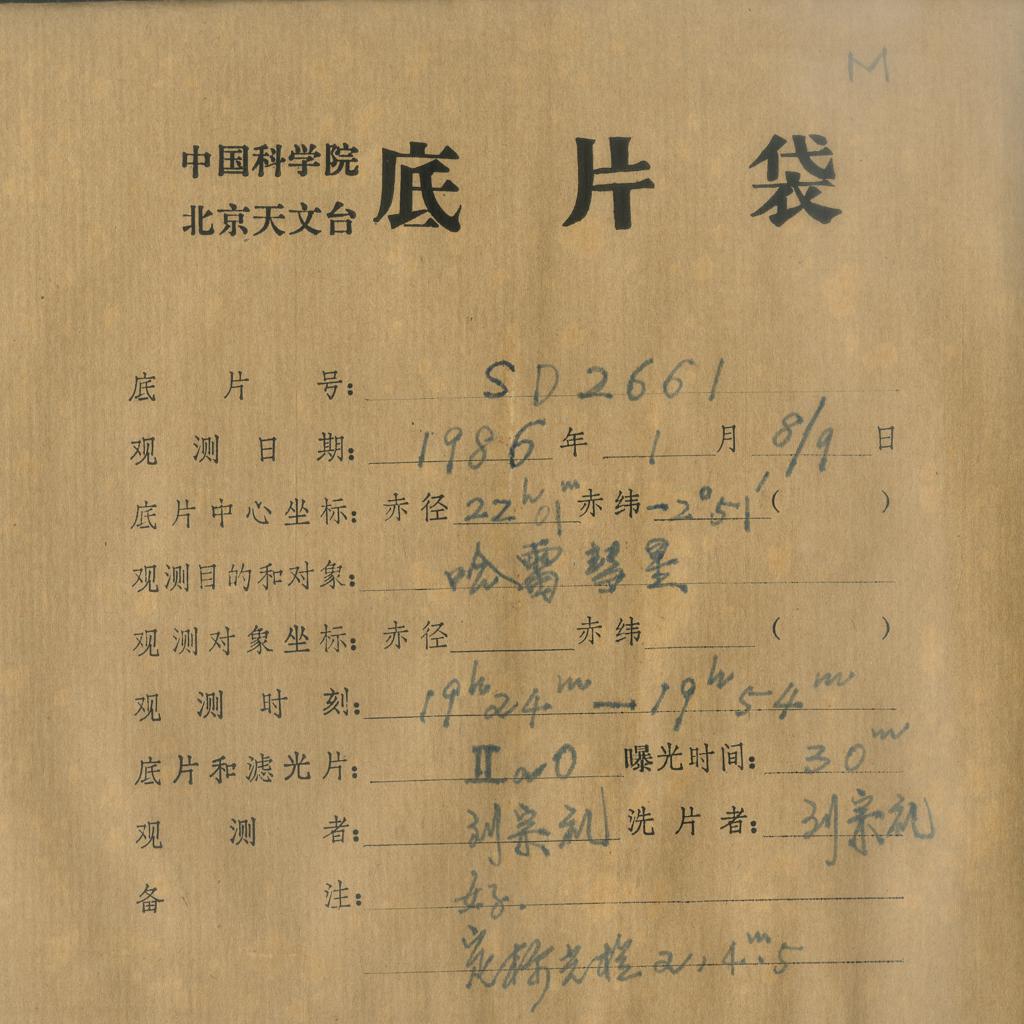 M
中国科学院
北京天文台 底片袋
底片号: SD2661
观测日期: 1986年 1月 8/9日
底片中心坐标: 赤径 22ʰ01ᵐ 赤纬 -2°51′ ( )
观测目的和对象: 哈雷彗星
观测对象坐标: 赤径 赤纬 ( )
观测时刻: 19ʰ24ᵐ — 19ʰ54ᵐ
底片和滤光片: IIaO 曝光时间: 30ᵐ
观测者: 刘宗礼 洗片者: 刘宗礼
备注: 好.
光栏 2, 4ᵐ.5